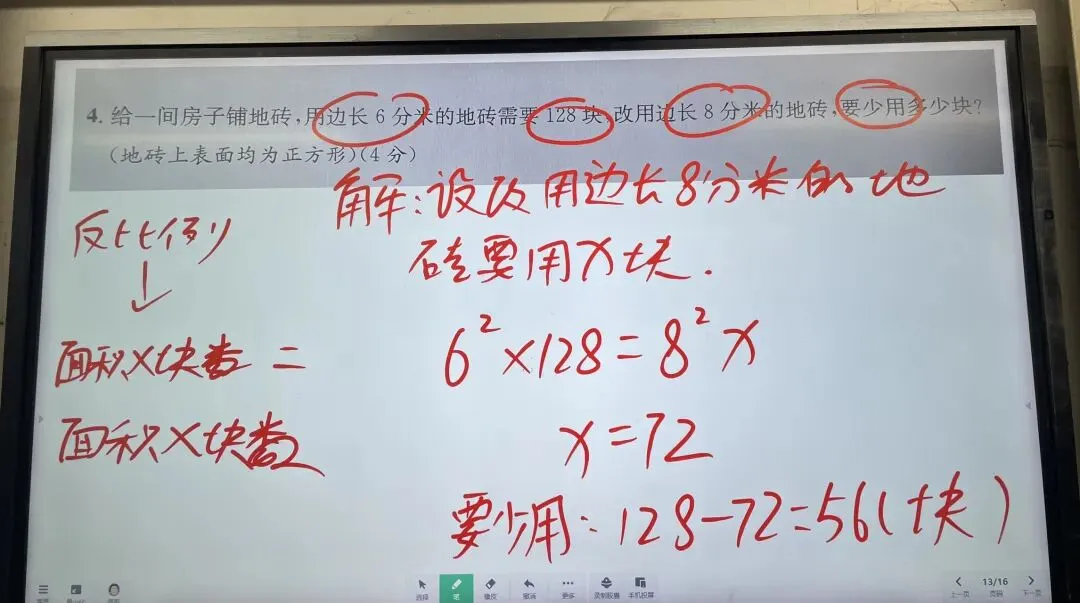 4. 给一间房子铺地砖,用边长 6 分米的地砖需要 128 块,改用边长 8 分米的地砖,要少用多少块?
(地砖上表面均为正方形)(4 分)
解:设改用边长8分米的地
砖要用x块.
反比例
↓
面积×块数=
面积×块数
6²×128=8²x
x=72
要少用:128-72=56(块)
选择 笔 橡皮 撤消 更多 录制胶囊 手机投屏
上一页 13/16 页码 下一页